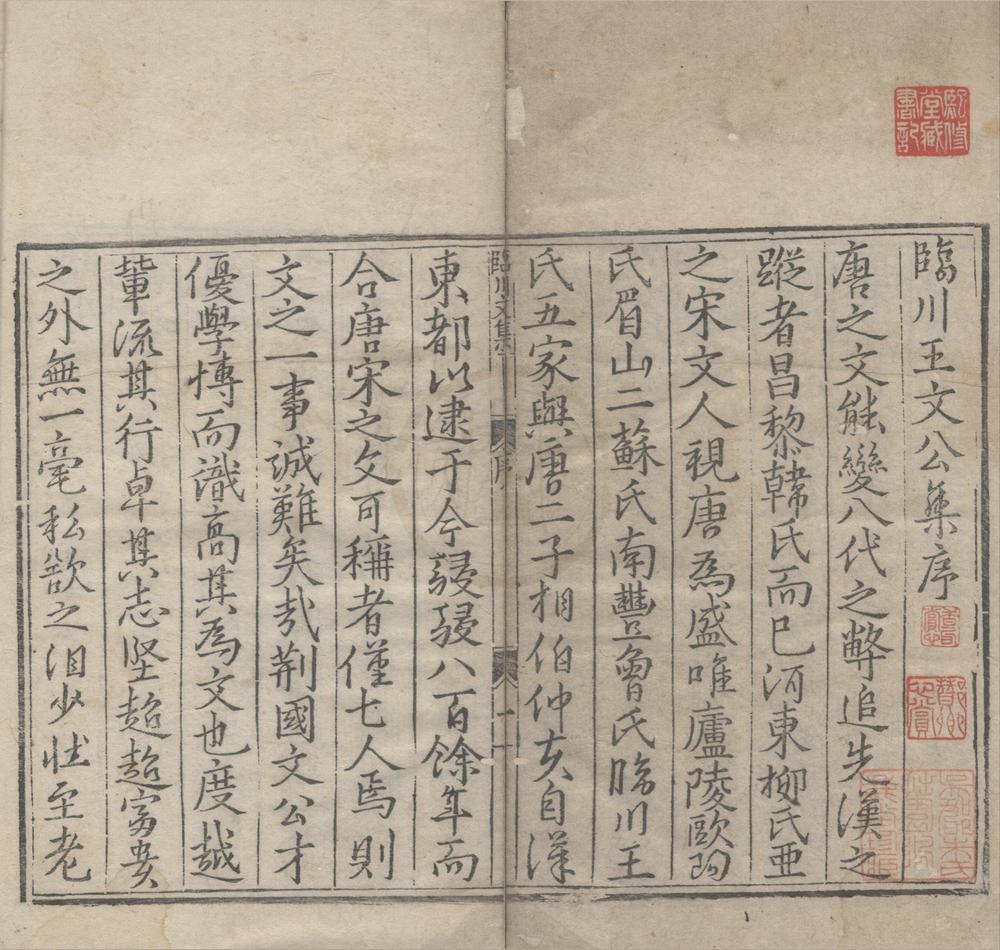 臨川王文公集序
唐之文能變八代之弊追先漢之
蹤者昌黎韓氏而已河東柳氏亞
之宋文人視唐為盛唯廬陵歐陽
氏眉山二蘇氏南豐曾氏臨川王
氏五家與唐二子相伯仲夫自漢
東都以逮于今駸駸八百餘年而
合唐宋之文可稱者僅七人焉則
文之一事誠難矣哉荆國文公才
優學博而識高其為文也度越
輩流其行卓其志堅超超富貴
之外無一毫私欲之泪少壯至老
臨川文集
序
一
熙修
堂藏
書記